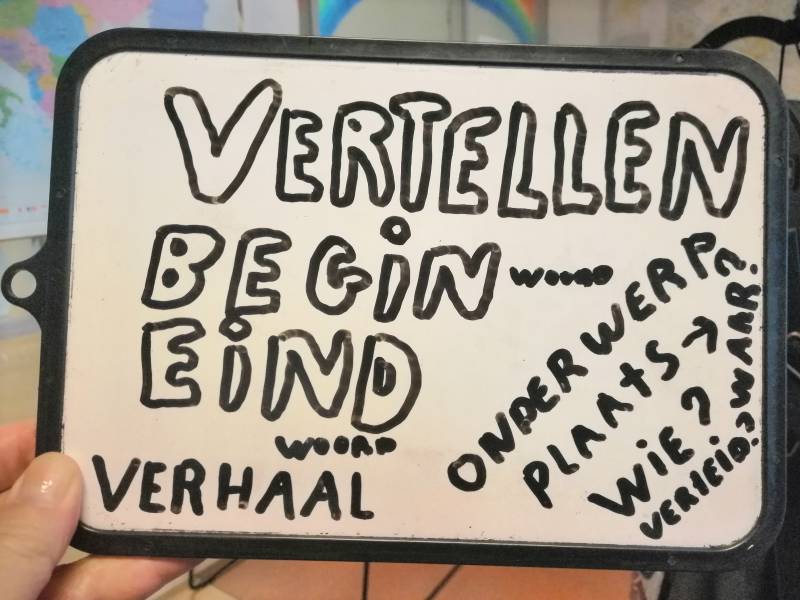 VERTELLEN
BEGiN WOORD
EiND
WOORD
VERHAAL
ONDERWERP
PLAAtS → WAAR?
WiE?